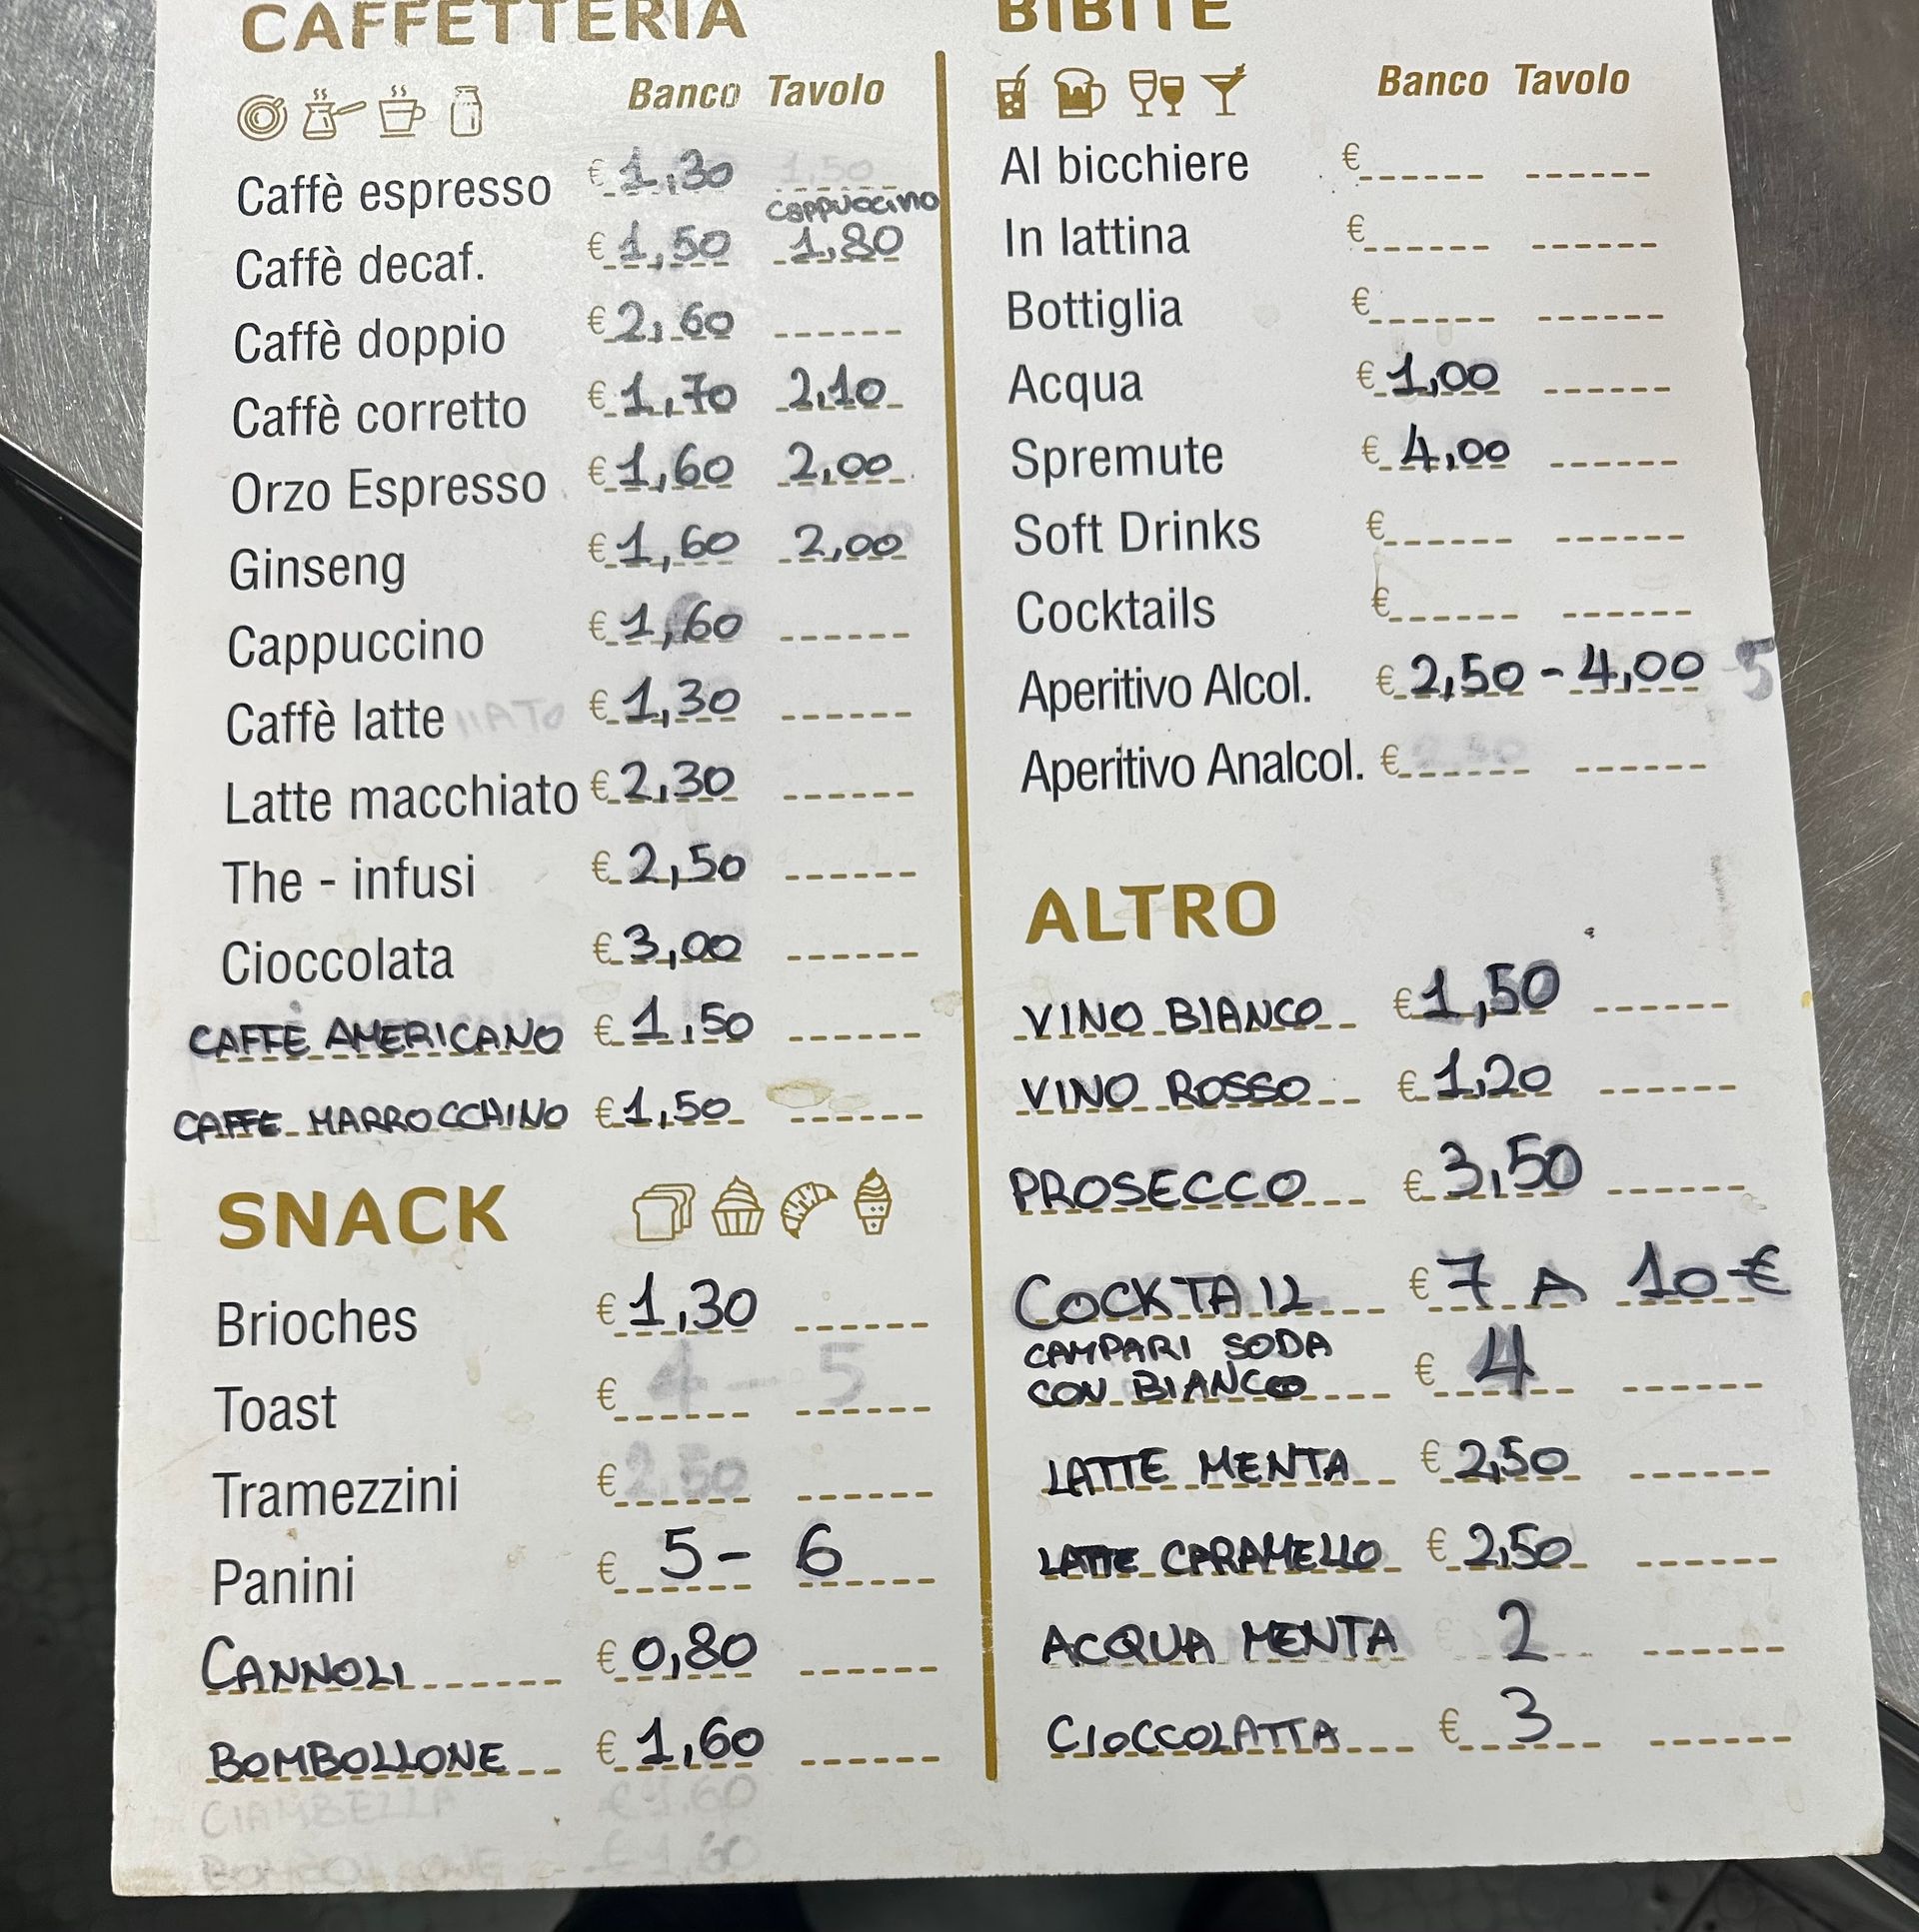 CAFFETTERIA
Banco Tavolo
Caffè espresso € 1,30 1,50
cappuccino
Caffè decaf. € 1,50 1,80
Caffè doppio € 2,60
Caffè corretto € 1,70 2,10
Orzo Espresso € 1,60 2,00
Ginseng € 1,60 2,00
Cappuccino € 1,60
Caffè latte € 1,30
Latte macchiato € 2,30
The - infusi € 2,50
Cioccolata € 3,00
CAFFE AMERICANO € 1,50
CAFFE MARROCCHINO € 1,50
SNACK
Brioches € 1,30
Toast € 4 - 5
Tramezzini € 2,50
Panini € 5 - 6
CANNOLI € 0,80
BOMBOLLONE € 1,60
CIAMBELLA € 1,60
BOMBOLLONE - € 1,60
BIBITE
Banco Tavolo
Al bicchiere €
In lattina €
Bottiglia €
Acqua € 1,00
Spremute € 4,00
Soft Drinks €
Cocktails €
Aperitivo Alcol. € 2,50 - 4,00 5
Aperitivo Analcol. €
ALTRO
VINO BIANCO € 1,50
VINO ROSSO € 1,20
PROSECCO € 3,50
COCKTAIL € 7 A 10 €
CAMPARI SODA
CON BIANCO € 4
LATTE MENTA € 2,50
LATTE CARAMELLO € 2,50
ACQUA MENTA 2
CIOCCOLATTA € 3